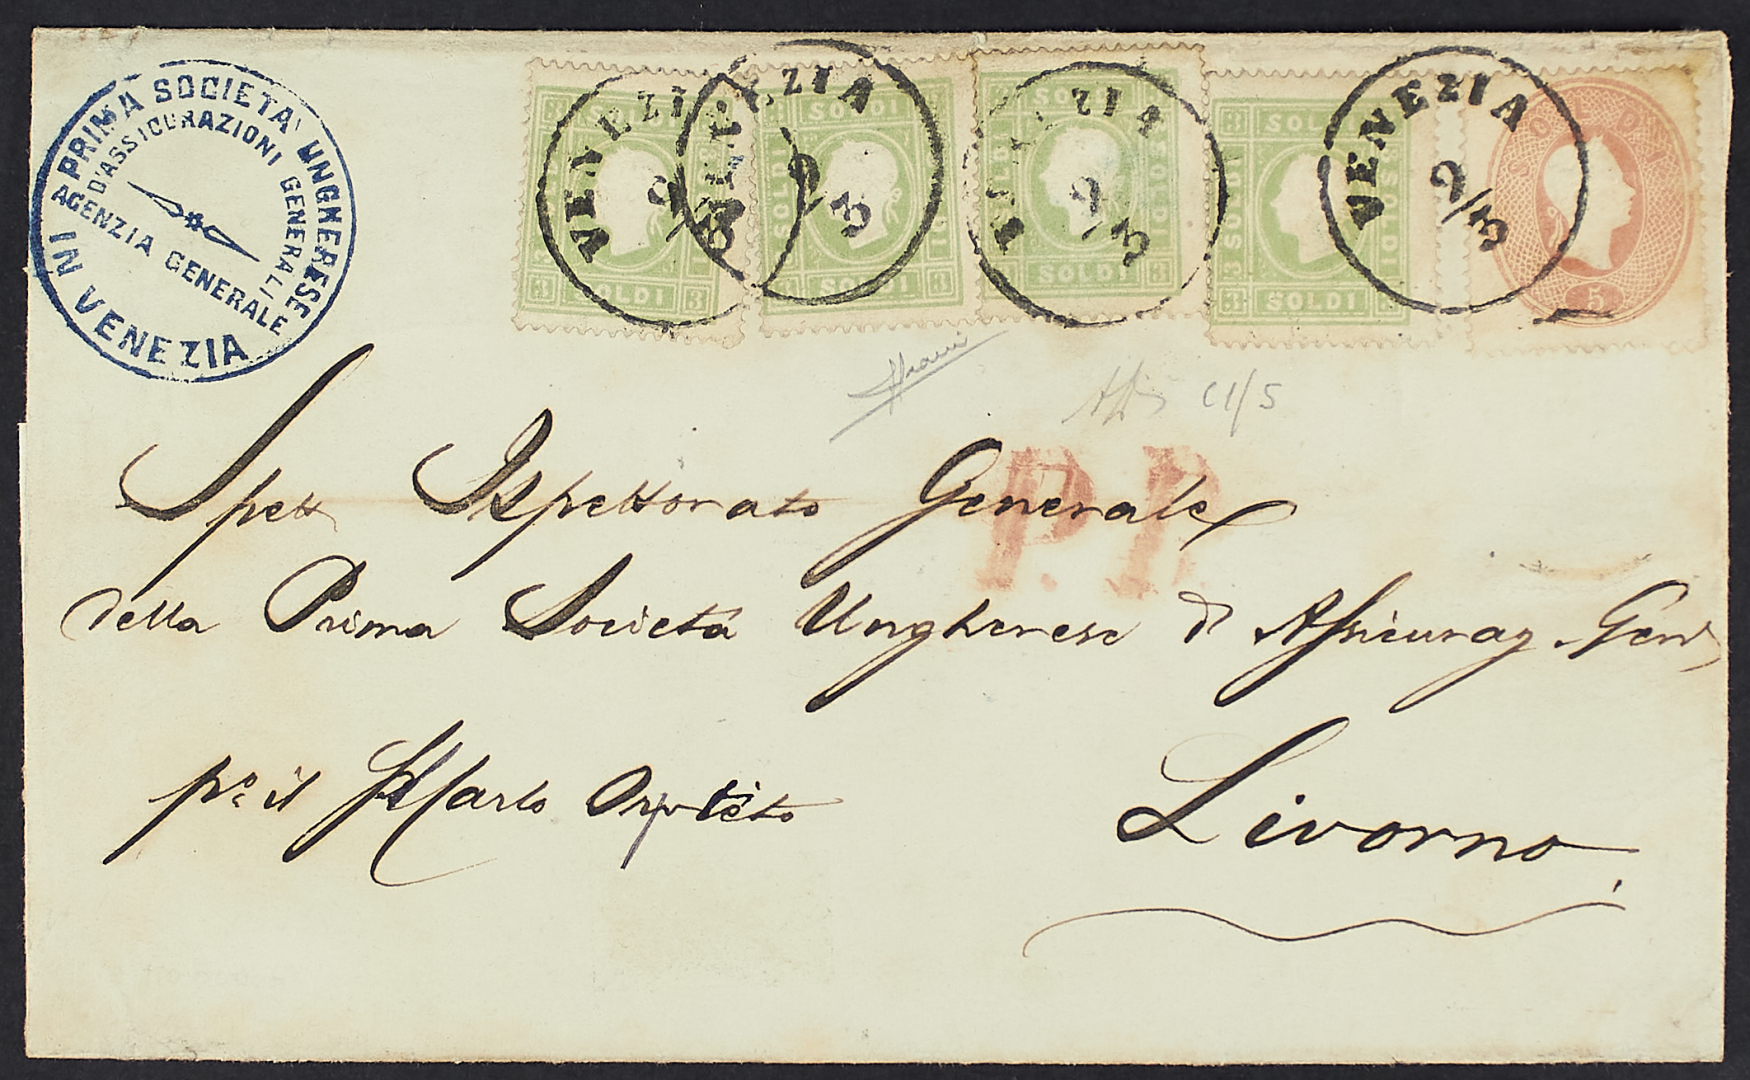 PRIMA SOCIETA' UNGHERESE
D'ASSICURAZIONI GENERALI
AGENZIA GENERALE
IN VENEZIA
SOLDI
3 SOLDI 3
VENEZIA
2/3
SOLDI
3 SOLDI 3
VENEZIA
2/3
SOLDI
SOLDI 3
VENEZIA
2/3
3 SOLDI
3 SOLDI
VENEZIA
2/3
5
C1/5
P.P.
Spett Ispettorato Generale
della Prima Società Ungherese d' Assicuraz. Gen
p. il Carlo
Livorno